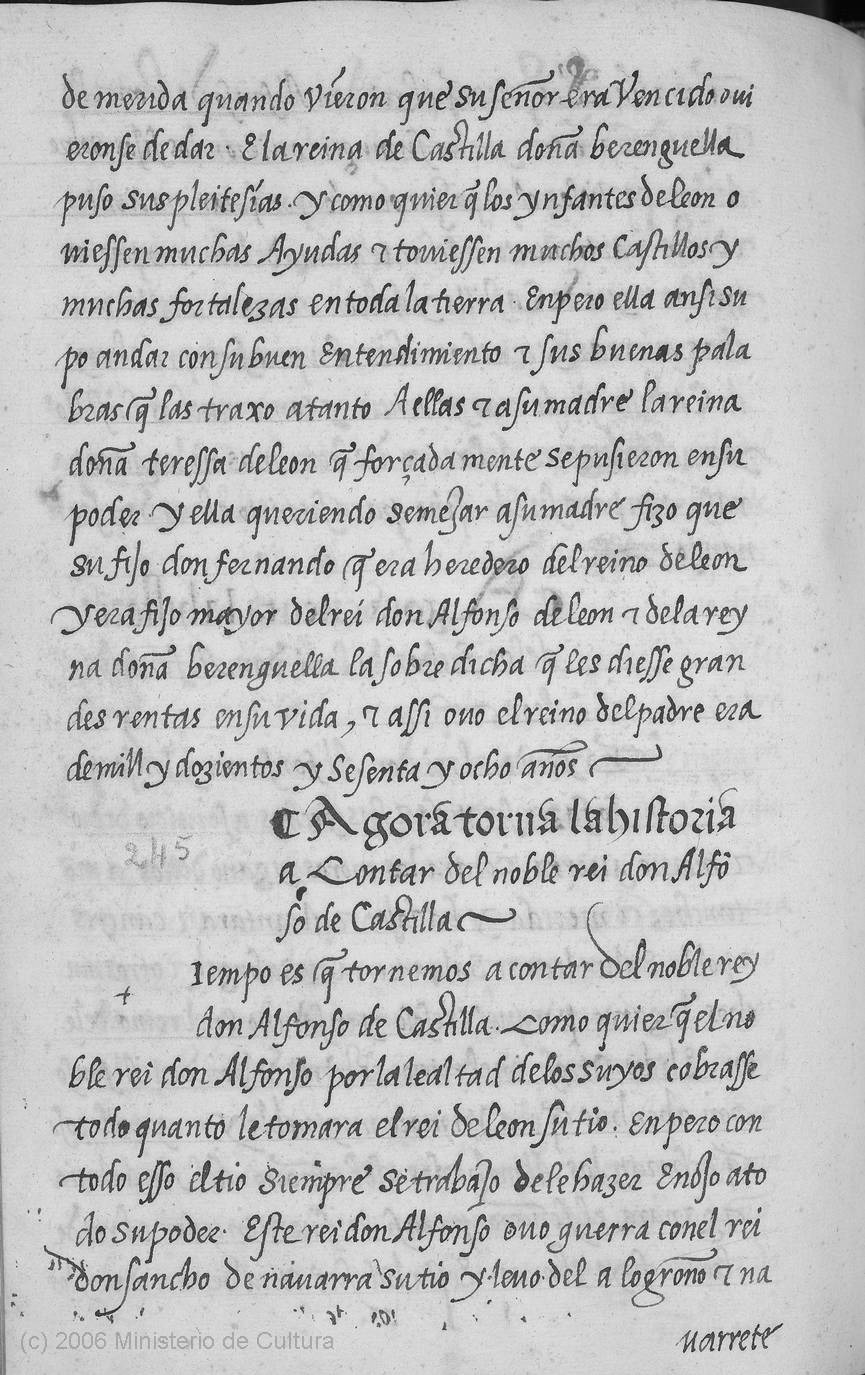 de merida quando vieron que su señor era Vencido oui
eronse de dar · E la reina de Castilla doña berenguella
puso sus pleitesias · y como quier q̃ los ynfantes de leon o
uiessen muchas Ayudas ⁊ touiessen muchos Castillos y
muchas fortalezas en toda la tierra · Enpero ella ansi su
po andar con su buen Entendimiento ⁊ sus buenas pala
bras q̃ las traxo atanto A ellas ⁊ a su madre la reina
doña teressa de leon q̃ forçada mente se pusieron en su
poder y ella queriendo semejar a su madre fizo que
su fijo don fernando q̃ era heredero del reino de leon
y era fijo mayor del rei don Alfonso de leon ⁊ de la rey
na doña berenguella la sobre dicha q̃ les diesse gran
des rentas en su vida, ⁊ assi ouo el reino del padre era
de mill y dozientos y Sesenta y ocho años
¶ Agora torna la historia
a Contar del noble rei don Alfõ
so de Castilla
245
Iempo es q̃ tornemos a contar del noble rey
don Alfonso de Castilla · Como quier q̃ el no
ble rei don Alfonso por la lealtad de los suyos cobrasse
todo quanto le tomara el rei de leon su tio · Enpero con
todo esso el tio siempre se trabajo de le hazer Enojo a to
do su poder · Este rei don Alfonso ouo guerra con el rei
don sancho de nauarra su tio y leuo del a logroño ⁊ na
uarrete
(c) 2006 Ministerio de Cultura